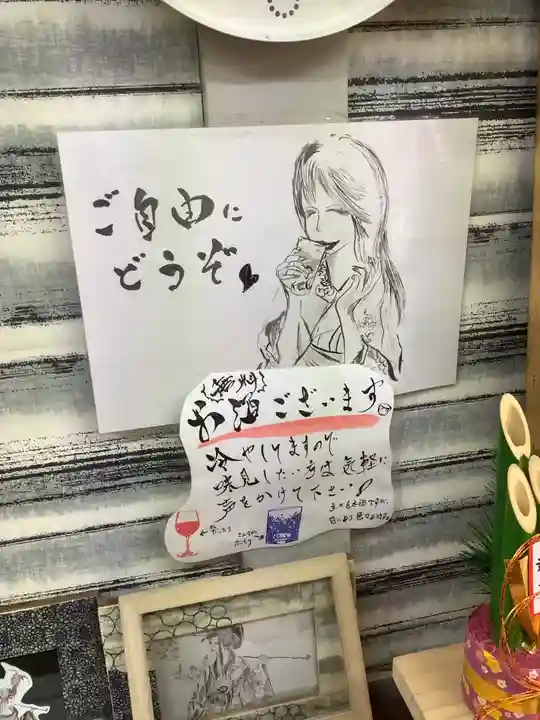 ご自由に
どうぞ
無料
お酒ございます
冷やしてますので
味見したい方は気軽に
声をかけて下さい